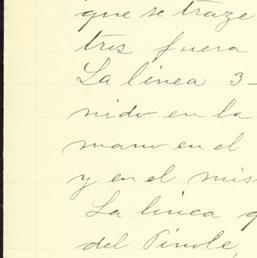 que se traze
tres fuera
La linea 3-
nido en la
mano en el
y en el mis
La linea q
del Pinole,